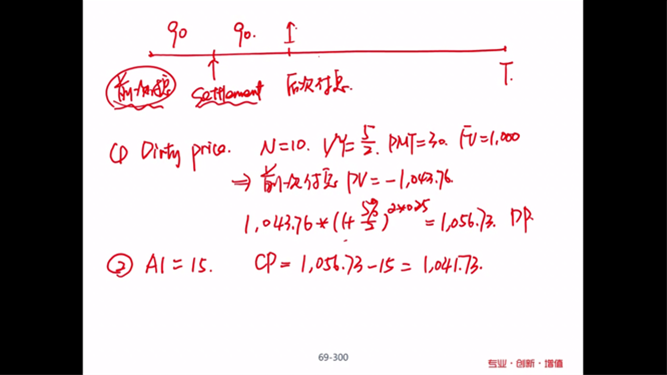 90 90.
前一次付息 Settlement 后次付息. T.
① Dirty price. N=10. I/Y=5/2. PMT=30. FV=1,000
⇒ 前一次付息 PV=-1,043.76.
1,043.76*(1+5%/2)^2*0.25=1,056.73. DP.
② AI=15. CP=1,056.73-15=1,041.73.
69-300
专业·创新·增值